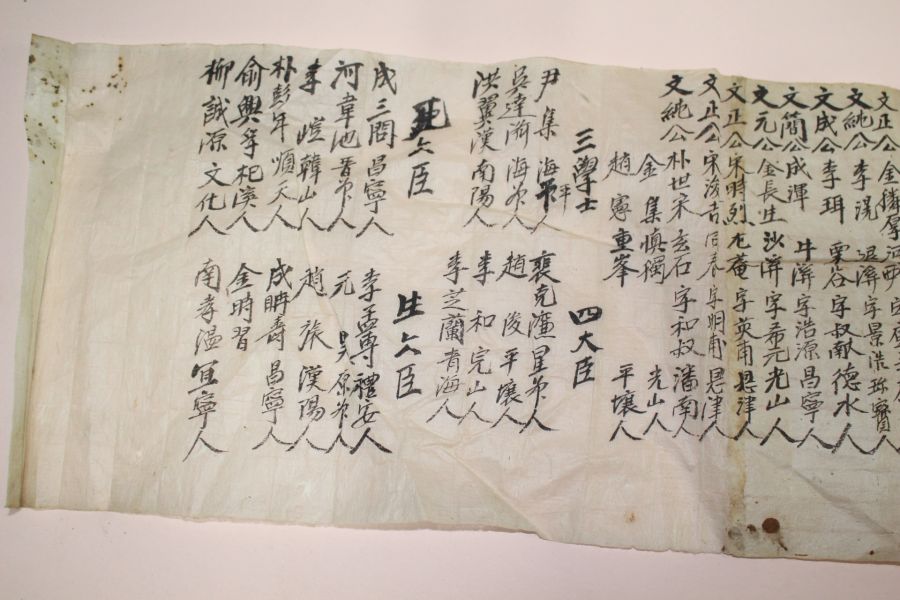 文正公金麟厚河西
文純公李滉退溪字景浩珍寶人
文成公李珥栗谷字叔献德水人
文簡公成渾牛溪字浩源昌寧人
文元公金長生沙溪字希元光山人
文正公宋時烈尤菴字英甫恩津人
文正公宋浚吉同春字明甫恩津人
文純公朴世采玄石字和叔潘南人
金集慎獨光山人
趙寧重峯平壤人
三學士
尹集海平人
吳達濟海州人
洪翼漢南陽人
四大臣
裴克廉星州人
趙浚平壤人
李和完山人
李芝蘭青海人
死六臣
成三問昌寧人
河韋池晉州人
李塏韓山人
朴彭年順天人
俞興孚杞溪人
柳誠源文化人
生六臣
李孟專禮安人
元昊原州人
趙旅漢陽人
成聃壽昌寧人
金時習
南孝温宜寧人